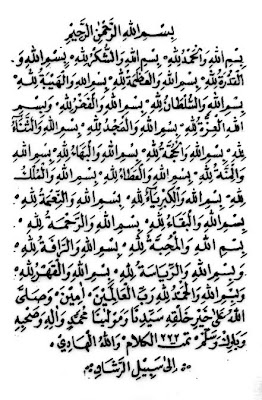 بِسْمِ اللهِ الرَّحْمٰنِ الرَّحِيْمِ
بِسْمِ اللهِ وَالْحَمْدُ لِلّٰهِ بِسْمِ اللهِ وَالشُّكْرُ لِلّٰهِ بِسْمِ اللهِ وَ
الْقُدْرَةُ لِلّٰهِ بِسْمِ اللهِ وَالْعَظْمَةُ لِلّٰهِ بِسْمِ اللهِ وَالْهَيْبَةُ لِلّٰهِ
بِسْمِ اللهِ وَالسُّلْطَانُ لِلّٰهِ بِسْمِ اللهِ وَالْفَخْرُ لِلّٰهِ وَبِسْمِ
اللهِ الْعِزَّةُ لِلّٰهِ بِسْمِ اللهِ وَالْمَجْدُ لِلّٰهِ بِسْمِ اللهِ وَالثَّنَاءُ
لِلّٰهِ بِسْمِ اللهِ وَالْحُجَّةُ لِلّٰهِ بِسْمِ اللهِ وَالْبَهَاءُ لِلّٰهِ بِسْمِ اللهِ
وَالْمِنَّةُ لِلّٰهِ بِسْمِ اللهِ وَالْعَطَاءُ لِلّٰهِ بِسْمِ اللهِ وَالْمُلْكُ
لِلّٰهِ بِسْمِ اللهِ وَالْكِبْرِيَاءُ لِلّٰهِ بِسْمِ اللهِ وَالنِّعْمَةُ لِلّٰهِ
بِسْمِ اللهِ وَالْبَقَاءُ لِلّٰهِ بِسْمِ اللهِ وَالرَّحْمَةُ لِلّٰهِ
بِسْمِ اللهِ وَالْمَحَبَّةُ لِلّٰهِ بِسْمِ اللهِ وَالرَّأْفَةُ لِلّٰهِ
وَبِسْمِ اللهِ وَالرِّيَاسَةُ لِلّٰهِ بِسْمِ اللهِ وَالْقَهْرُ لِلّٰهِ
وَبِسْمِ اللهِ وَالْحَمْدُ لِلّٰهِ رَبِّ الْعَالَمِيْنَ اٰمِيْنَ وَصَلَّى
اللهُ عَلَى خَيْرِ خَلْقِهِ سَيِّدِنَا وَمَوْلٰينَا مُحَمَّدٍ وَاٰلِهِ وَصَحْبِهِ
وَبَارِكْ وَسَلِّمْ تمت الكلام وَاللهُ الْهَادِى
اِلَى سَبِيْلِ الرَّشَادِ